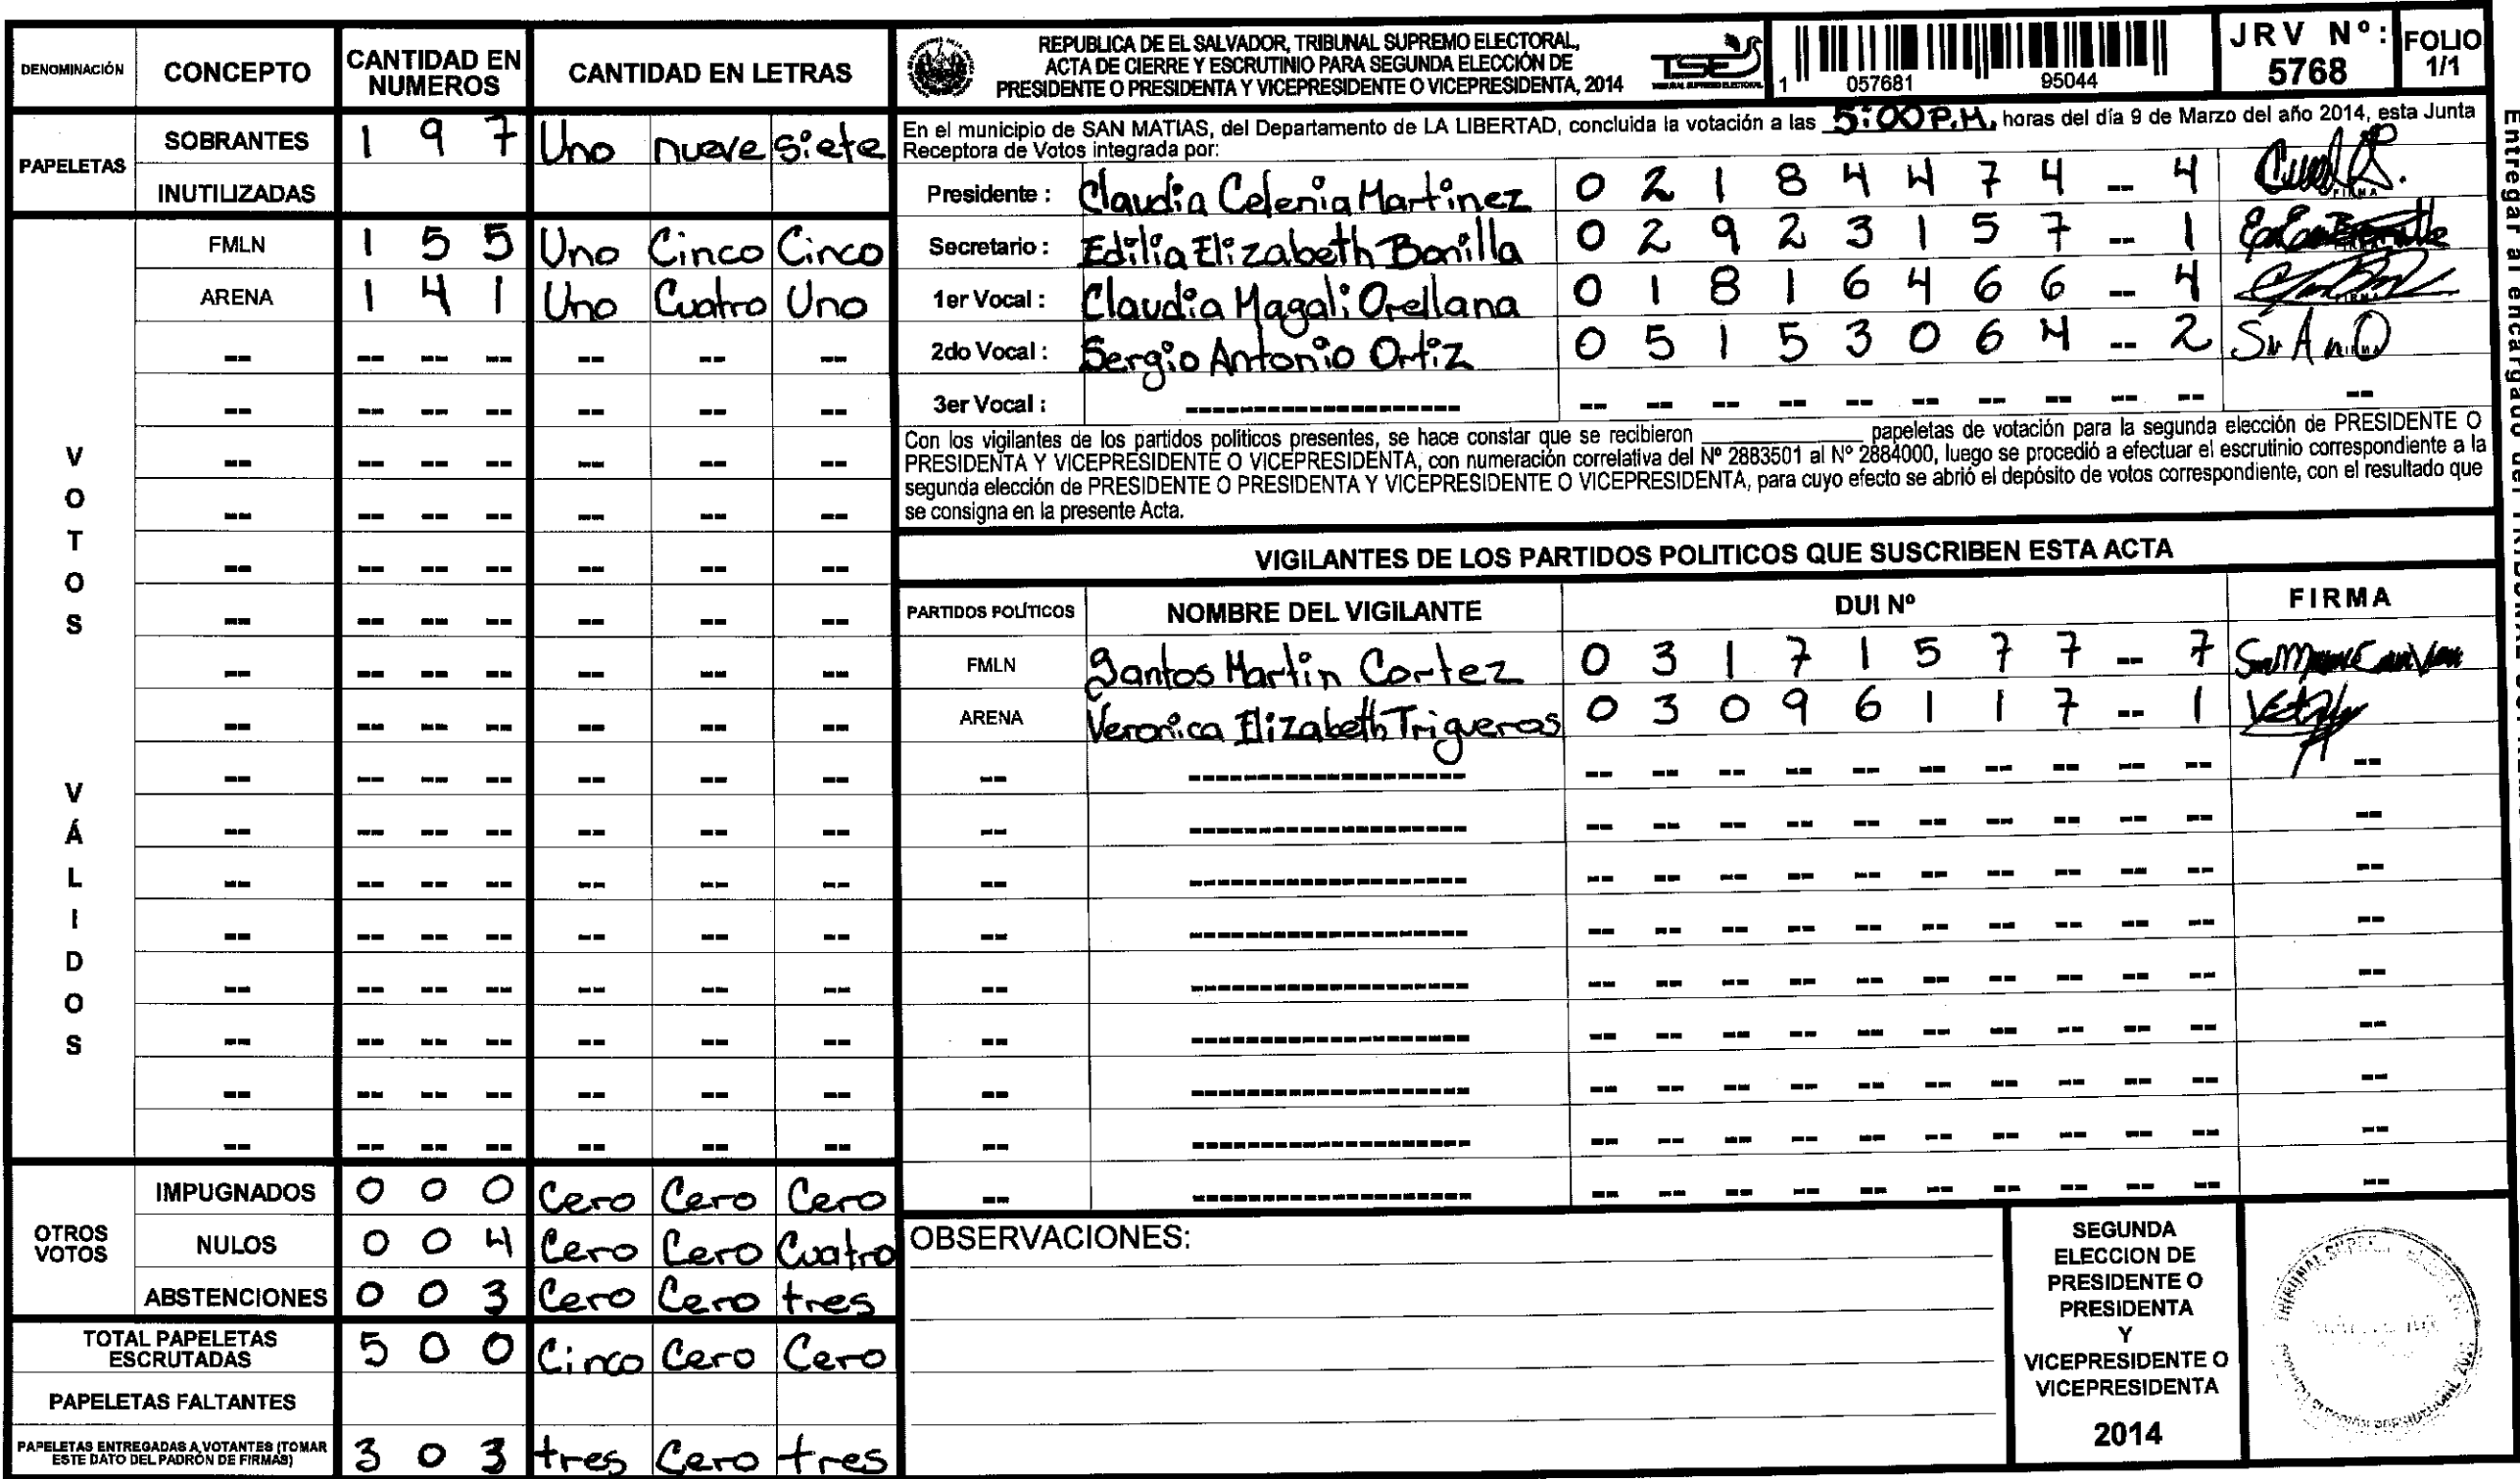 DENOMINACIÓN CONCEPTO CANTIDAD EN NUMEROS CANTIDAD EN LETRAS
PAPELETAS
SOBRANTES 1 9 7 Uno nueve siete
INUTILIZADAS
VOTOS VÁLIDOS
FMLN 1 5 5 Uno Cinco Cinco
ARENA 1 4 1 Uno Cuatro Uno
OTROS VOTOS
IMPUGNADOS 0 0 0 Cero Cero Cero
NULOS 0 0 4 Cero Cero Cuatro
ABSTENCIONES 0 0 3 Cero Cero tres
TOTAL PAPELETAS ESCRUTADAS 5 0 0 Cinco Cero Cero
PAPELETAS FALTANTES
PAPELETAS ENTREGADAS A VOTANTES (TOMAR ESTE DATO DEL PADRÓN DE FIRMAS) 3 0 3 tres Cero tres
REPUBLICA DE EL SALVADOR, TRIBUNAL SUPREMO ELECTORAL,
ACTA DE CIERRE Y ESCRUTINIO PARA SEGUNDA ELECCIÓN DE
PRESIDENTE O PRESIDENTA Y VICEPRESIDENTE O VICEPRESIDENTA, 2014
TSE
1 057681 95044
JRV Nº: 5768
FOLIO 1/1
En el municipio de SAN MATIAS, del Departamento de LA LIBERTAD, concluida la votación a las 5:00 P.M. horas del día 9 de Marzo del año 2014, esta Junta
Receptora de Votos integrada por:
Presidente : Claudia Celenia Martinez 0 2 1 8 4 4 7 4 -- 4
Secretario : Edilia Elizabeth Bonilla 0 2 9 2 3 1 5 7 -- 1
1er Vocal : Claudia Magali Orellana 0 1 8 1 6 4 6 6 -- 4
2do Vocal : Sergio Antonio Ortiz 0 5 1 5 3 0 6 4 -- 2
3er Vocal :
Con los vigilantes de los partidos políticos presentes, se hace constar que se recibieron ____________ papeletas de votación para la segunda elección de PRESIDENTE O
PRESIDENTA Y VICEPRESIDENTE O VICEPRESIDENTA, con numeración correlativa del Nº 2883501 al Nº 2884000, luego se procedió a efectuar el escrutinio correspondiente a la
segunda elección de PRESIDENTE O PRESIDENTA Y VICEPRESIDENTE O VICEPRESIDENTA, para cuyo efecto se abrió el depósito de votos correspondiente, con el resultado que
se consigna en la presente Acta.
VIGILANTES DE LOS PARTIDOS POLITICOS QUE SUSCRIBEN ESTA ACTA
PARTIDOS POLÍTICOS NOMBRE DEL VIGILANTE DUI Nº FIRMA
FMLN Santos Martin Cortez 0 3 1 7 1 5 7 7 -- 7
ARENA Veronica Elizabeth Trigueros 0 3 0 9 6 1 1 7 -- 1
OBSERVACIONES:
SEGUNDA
ELECCION DE
PRESIDENTE O
PRESIDENTA
Y
VICEPRESIDENTE O
VICEPRESIDENTA
2014
Entregar al encargado del